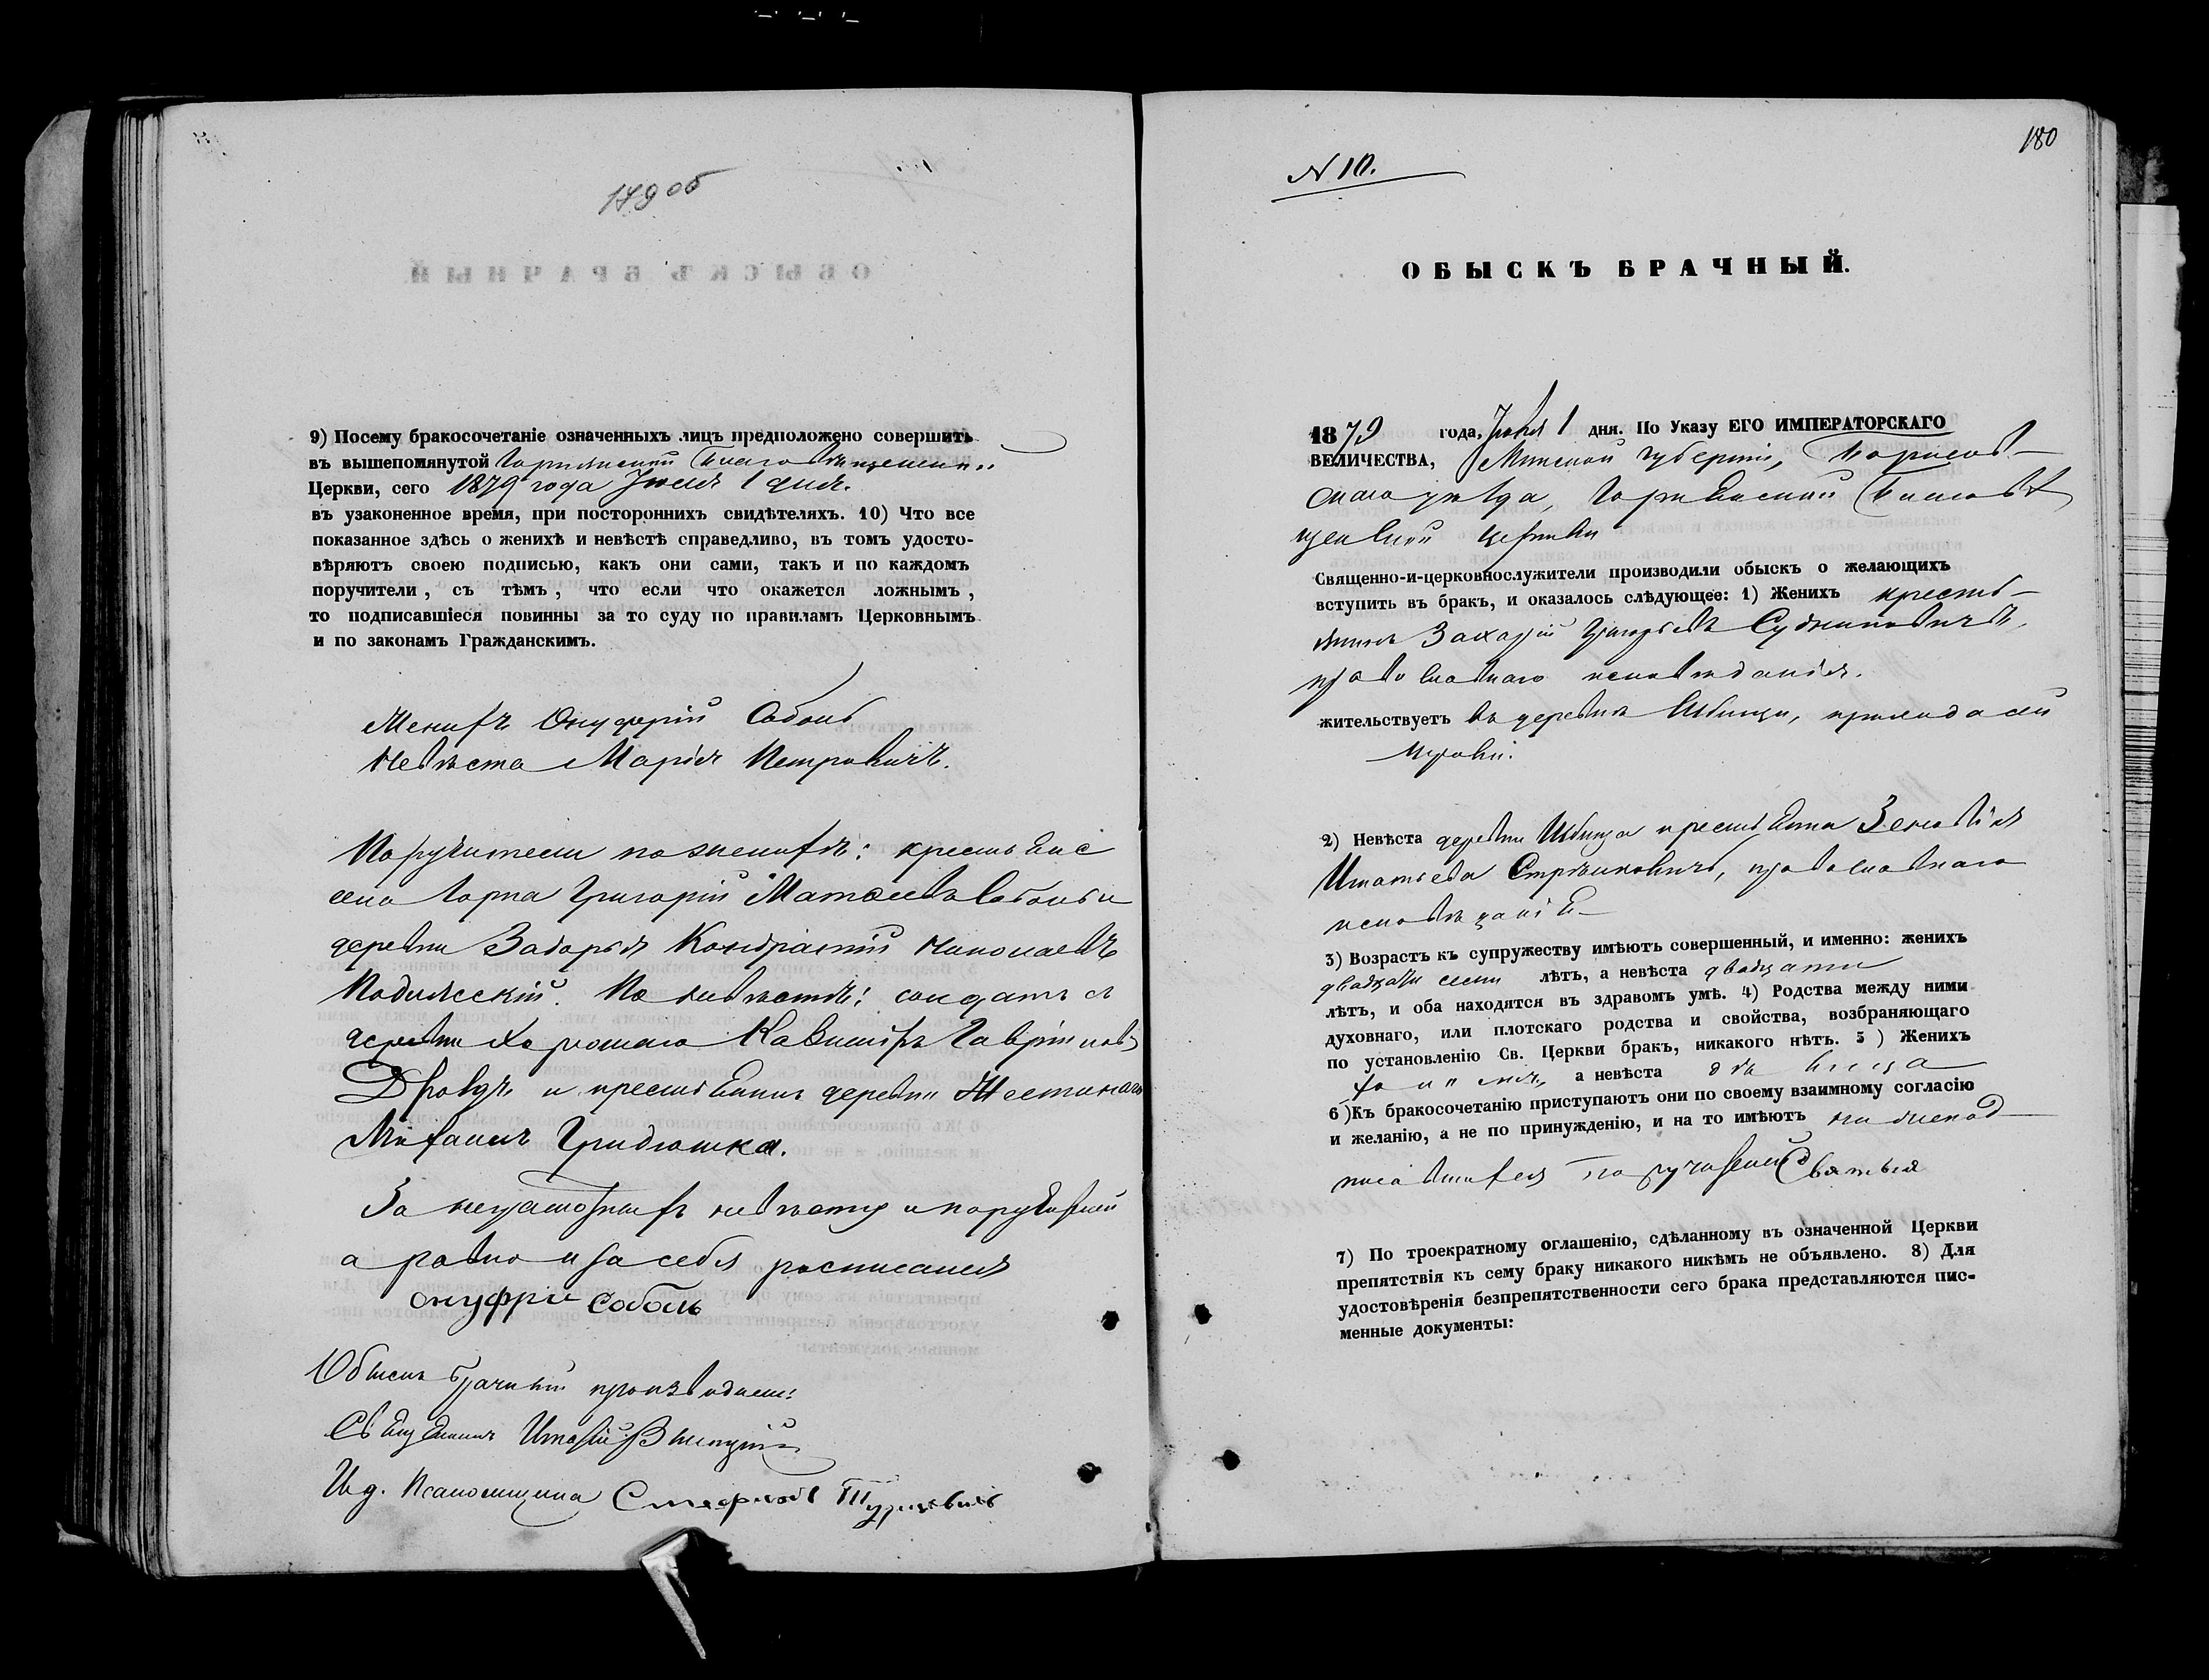 179 об
9) Посему бракосочетаніе означенныхъ лицъ предположено совершить
въ вышепомянутой Благовѣщенской
Церкви, сего 1879 года Іюля 1 дня.
въ узаконенное время, при постороннихъ свидѣтеляхъ. 10) Что все
показанное здѣсь о женихѣ и невѣстѣ справедливо, въ томъ удосто-
вѣряютъ своею подписью, какъ они сами, такъ и по каждомъ
поручители, съ тѣмъ, что если что окажется ложнымъ,
то подписавшіеся повинны за то суду по правиламъ Церковнымъ
и по законамъ Гражданскимъ.
Женихъ Онуфрій Соболь
Невѣста Марія Петровичъ.
Поручители по женихѣ: крестьяне
села Горна Григорій Матѳеевъ Соболь и
деревни Заборья Кондратій Николаевъ
По невѣстѣ: солдатъ съ
деревни Хорошаго
и крестьянинъ деревни
Михаилъ Гридюшка.
За неграмотныхъ невѣсту и поручителей
а равно и за себя росписался
Онуфри Соболь
Обыскъ брачный производили:
Священникъ
И. д. Псаломщика Стефанъ
180
N 10.
ОБЫСКЪ БРАЧНЫЙ.
1879 года, Іюля 1 дня. По Указу ЕГО ИМПЕРАТОРСКАГО
ВЕЛИЧЕСТВА, Минской губерніи, Борисов-
скаго уѣзда, Благовѣ
щенской церкви
Священно-и-церковнослужители производили обыскъ о желающихъ
вступить въ бракъ, и оказалось слѣдующее: 1) Женихъ кресть-
янинъ Захарій Григорьевъ Судниковичъ,
православнаго исповѣданія.
жительствуетъ въ деревнѣ прихода сей
церкви.
2) Невѣста деревни крестьянка Зеновія
Игнатьева православнаго
исповѣданія
3) Возрастъ къ супружеству имѣютъ совершенный, и именно: женихъ
двадцати семи лѣтъ, а невѣста двадцати
лѣтъ, и оба находятся въ здравомъ умѣ. 4) Родства между ними
духовнаго, или плотскаго родства и свойства, возбраняющаго
по установленію Св. Церкви бракъ, никакого нѣтъ. 5) Женихъ
холостъ, а невѣста дѣвица
6) Къ бракосочетанію приступаютъ они по своему взаимному согласію
и желанію, а не по принужденію, и на то имѣютъ нижепод-
писавшихся поручителей
7) По троекратному оглашенію, сдѣланному въ означенной Церкви
препятствія къ сему браку никакого никѣмъ не объявлено. 8) Для
удостовѣренія безпрепятственности сего брака представляются пис-
менные документы: